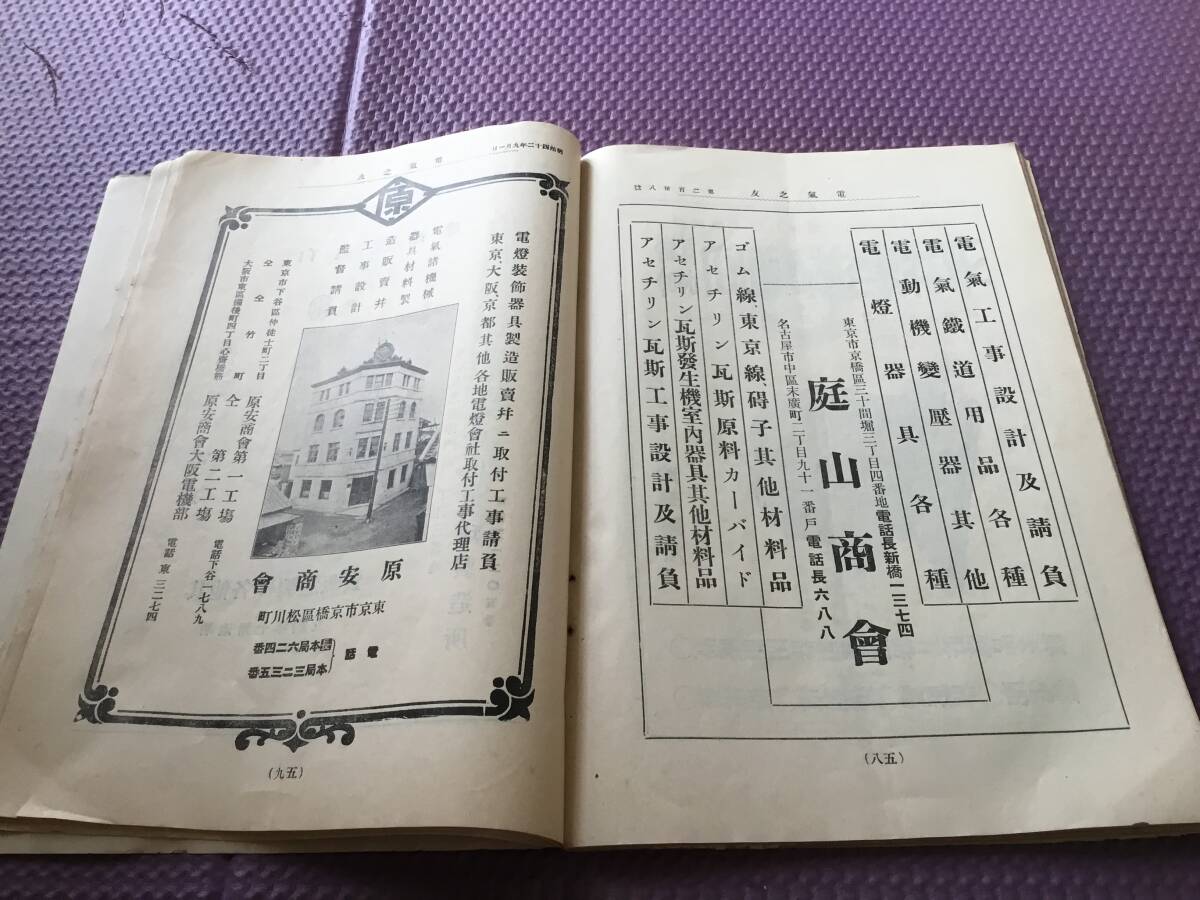 電氣之友
第二百拾八號
電氣工事設計及請負
電氣鐵道用品各種
電動機變壓器其他
電燈器具各種
東京市京橋區三十間堀三丁目四番地 電話長新橋一三七四
庭山商會
名古屋市中區末廣町二丁目九十一番戸 電話長六八八
ゴム線、東京線、碍子其他材料品
アセチリン瓦斯原料カーバイド
アセチリン瓦斯發生機室內器具其他材料品
アセチリン瓦斯工事設計及請負
(八五)
明治四十二年九月一日
電氣之友
原
電燈裝飾器具製造販賣幷ニ取付工事請負
東京、大阪、京都其他各地電燈會社取付工事代理店
電氣諸機械
器具材料製
造販賣幷
工事設計
監督請負
原安商會
東京市京橋區松川町
電話
本局六二四番
本局三二三五番
東京市下谷區仲徒士町二丁目 原安商會第一工場 電話下谷一七八九
仝 仝 竹町 仝 第二工場
大阪市東區備後町四丁目心齋橋筋 原安商會大阪電機部 電話東三二七四
(九五)